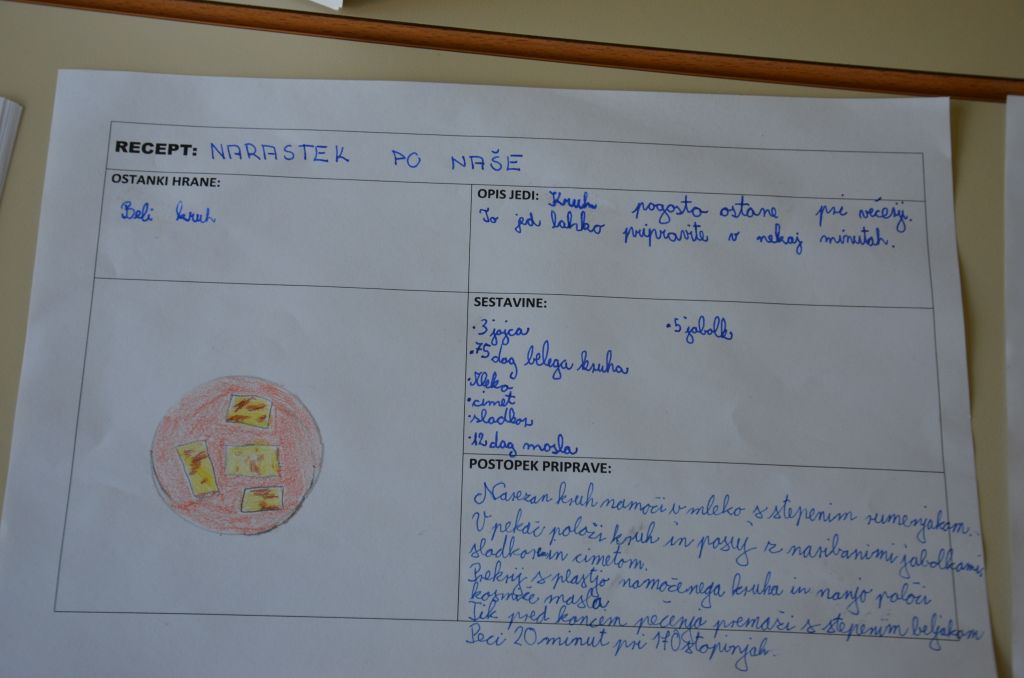 RECEPT: NARASTEK PO NAŠE
OSTANKI HRANE:
Beli kruh
OPIS JEDI: Kruh pogosto ostane pri večerji.
To jed lahko pripravite v nekaj minutah.
SESTAVINE:
• 3 jajca
• 5 jabolk
• 75 dag belega kruha
• Mleko
• cimet
• sladkor
• 12 dag masla
POSTOPEK PRIPRAVE:
Narezan kruh namoči v mleko s stepenim rumenjakom.
V pekač položi kruh in posuj z naribanimi jabolkami,
sladkorom in cimetom.
Prekrij s plastjo namočenega kruha in nanjo položi
kosmiče masla.
Tik pred koncem pečenja premaži s stepenim beljakom
Peci 20 minut pri 170 stopinjah.